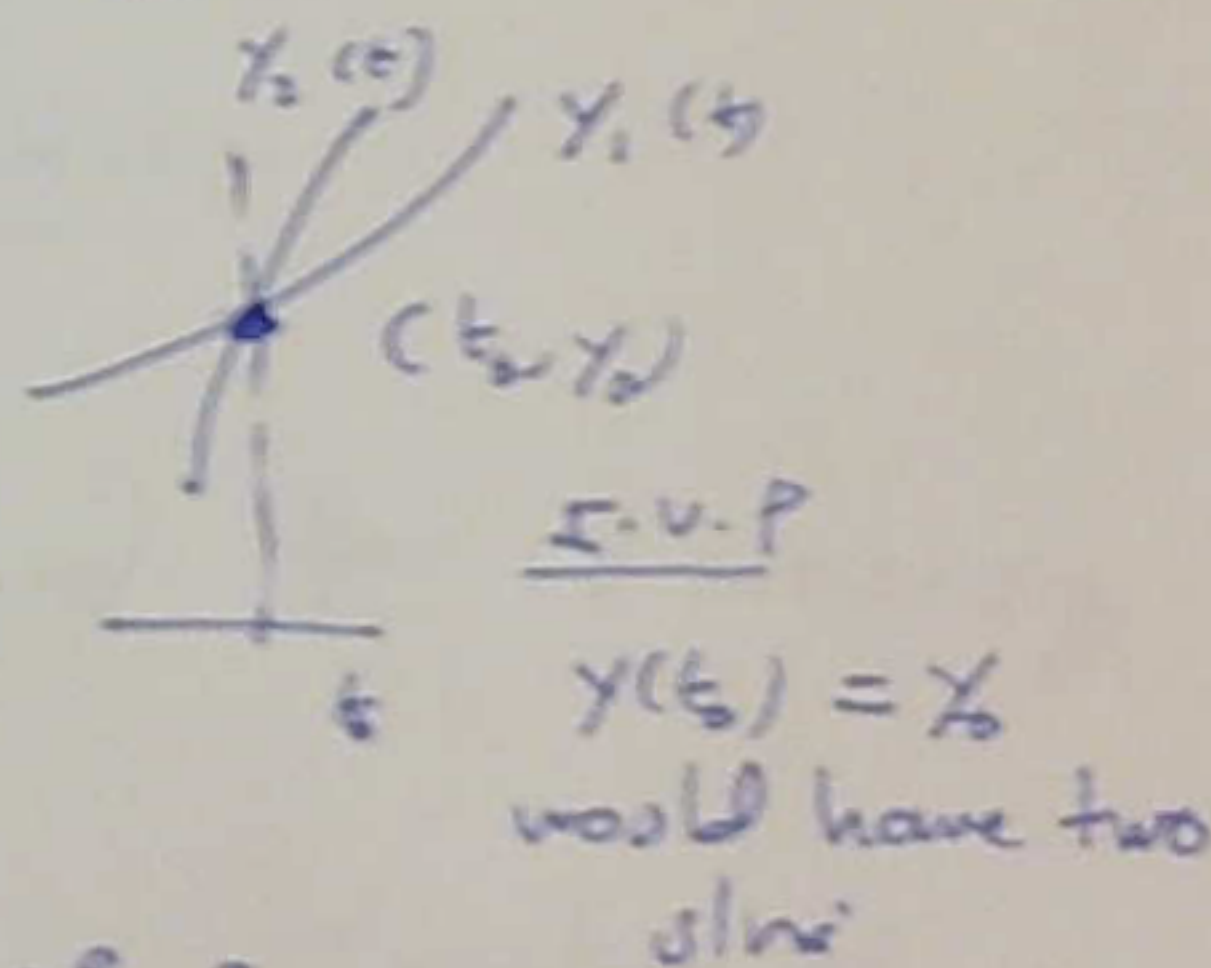 y₂ (t)
y₁ (t)
(t₀, y₀)
I.V.P
t₀
y(t₀) = y₀
would have two
slns